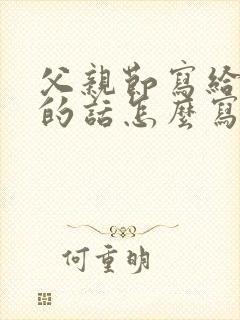 父親節寫給
的話怎麼寫
何重明